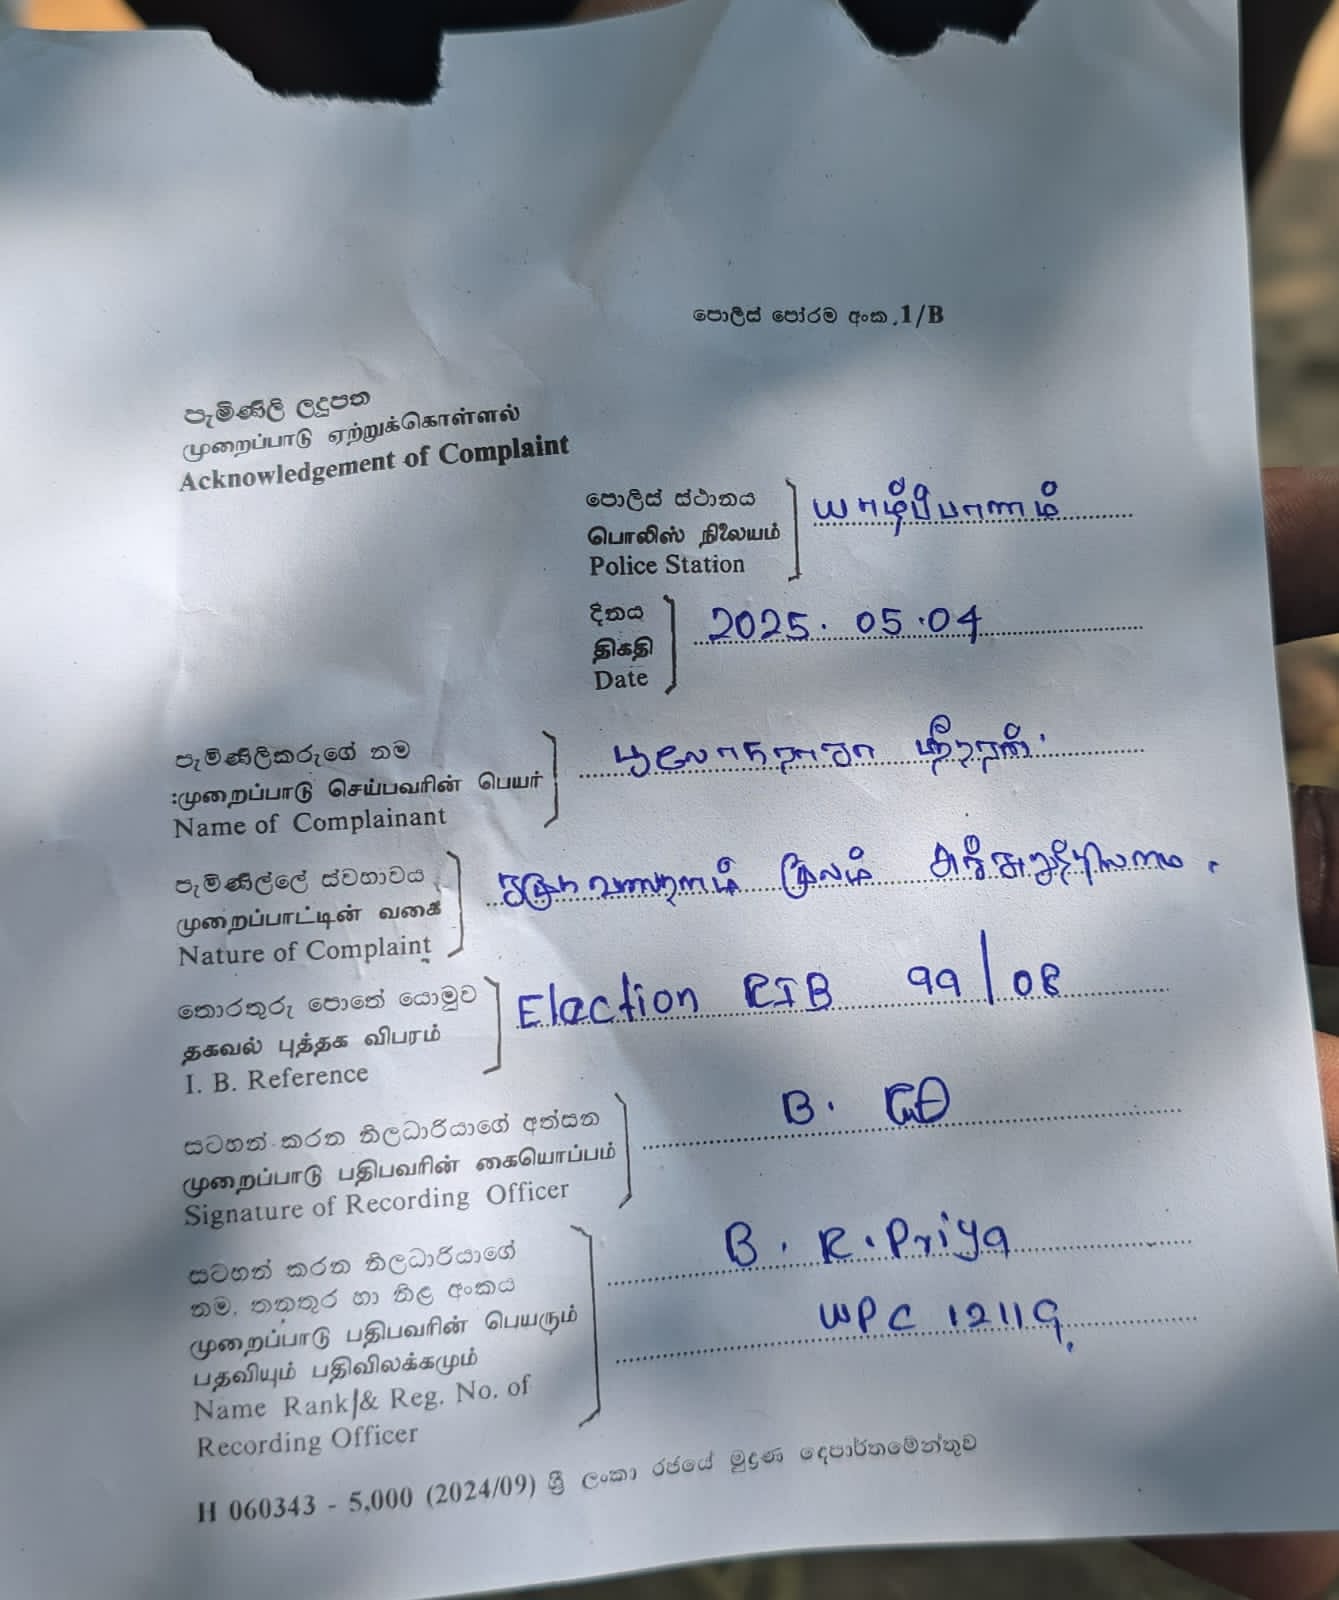 පොලිස් පෝරම අංක .1/B
පැමිණිලි ලදුපත
முறைப்பாடு ஏற்றுக்கொள்ளல்
Acknowledgement of Complaint
පොලිස් ස්ථානය
பொலிஸ் நிலையம்
Police Station
யாழ்ப்பாணம்
දිනය
திகதி
Date
2025. 05.04
පැමිණිලිකරුගේ නම
:முறைப்பாடு செய்பவரின் பெயர்
Name of Complainant
පැමිණිල්ලේ ස්වභාවය
முறைப்பாட்டின் வகை
Nature of Complaint
மூலம்
තොරතුරු පොතේ යොමුව
தகவல் புத்தக விபரம்
I. B. Reference
Election CIB 99/08
සටහන් කරන නිලධාරියාගේ අත්සන
முறைப்பாடு பதிபவரின் கையொப்பம்
Signature of Recording Officer
B.
සටහන් කරන නිලධාරියාගේ
නම, තනතුර හා නිළ අංකය
முறைப்பாடு பதிபவரின் பெயரும்
பதவியும் பதிவிலக்கமும்
Name Rank & Reg. No. of
Recording Officer
B. R. Priya
WPC 12119
H 060343 - 5,000 (2024/09) ශ්‍රී ලංකා රජයේ මුද්‍රණ දෙපාර්තමේන්තුව